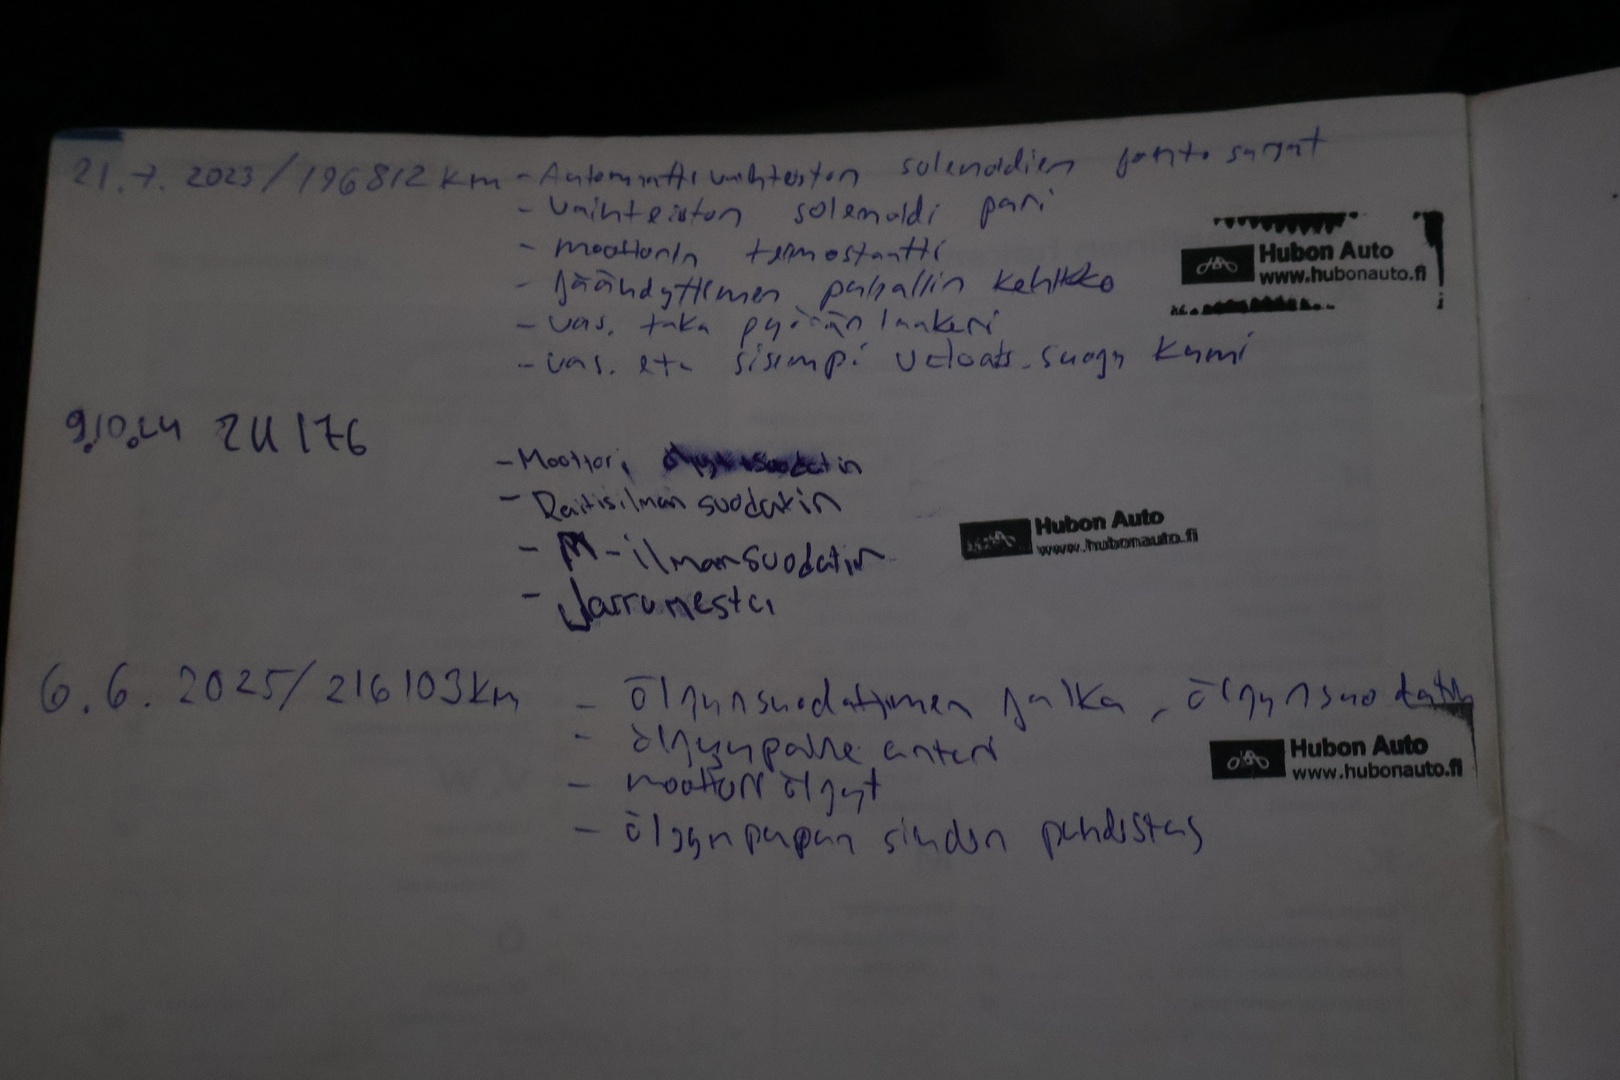 21.7.2023/196812 km - Automaatti vaihteiston solenoidien johto sarjat
- vaihteiston solenoidi pari
- moottorin termostaatti
- jäähdyttimen puhallin kehikko
- vas. taka pyörän laakeri
- vas. etu sisempi vetoaks. suoja kumi
Hubon Auto
www.hubonauto.fi
9.10.24 211176
- Moottori
- Raitisilman suodatin
- M-ilmansuodatin
- Jarruneste
Hubon Auto
www.hubonauto.fi
6.6.2025/216103km - öljynsuodattimen jalka, öljynsuodatin
- öljynpaine anturi
- moottori öljyt
- öljynpapan siudön puhdistus
Hubon Auto
www.hubonauto.fi